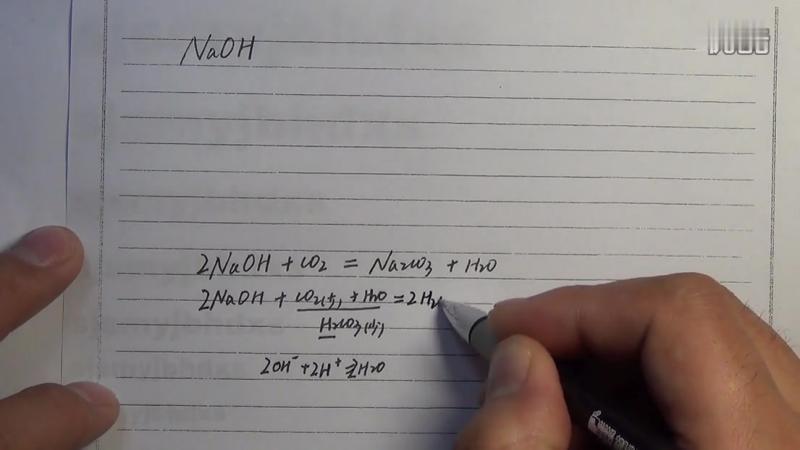 NaOH
2NaOH + CO2 = Na2CO3 + H2O
2NaOH + CO2(少) + H2O = 2H2O
H2CO3(少)
2OH⁻ + 2H⁺ = 2H2O